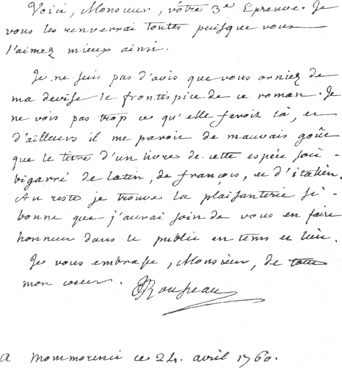 Voici, Monsieur, vôtre 3e Epreuve. Je
vous les renverrai toutes puisque vous
l'aimez mieux ainsi.
Je ne suis pas d'avis que vous orniez de
ma devise le frontispice de ce roman. Je
ne vois pas trop ce qu'elle feroit là, et
d'ailleurs il me paroit de mauvais goût
que le titre d'un livre de cette espéce soit
bigarré de latin, de françois, et d'italien.
Au reste je trouve la plaisanterie si
bonne que j'aurai soin de vous en faire
honneur dans le public en tems et lieu.
Je vous embrasse, Monsieur, de tout
mon coeur. JJRousseau
A Monmorenci ce 24. avril 1760.